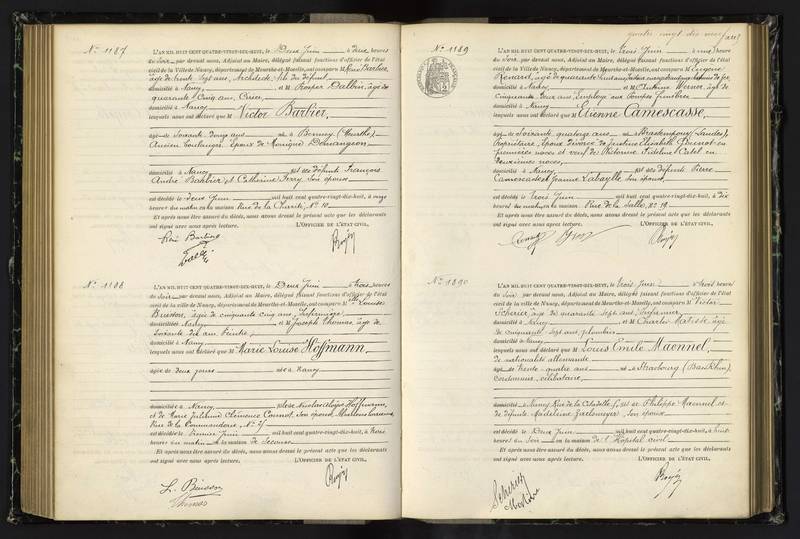 N° 1187
L'AN MIL HUIT CENT QUATRE-VINGT-DIX-HUIT, le Deux Juin à deux heures
du Soir, par devant nous, Adjoint au Maire, délégué faisant fonctions d'officier de l'état
civil de la Ville de Nancy, département de Meurthe-et-Moselle, ont comparu M René Barbier,
âgé de trente Sept ans, Architecte, fils du défunt
domicilié à Nancy, et M Prosper Dalbin, âgé de
quarante Cinq ans, Crieur,
domicilié à Nancy
lesquels nous ont déclaré que M Victor Barbier,
âgé de Soixante douze ans né à (Meurthe),
Ancien boulanger, Epoux de Monique Demangeon
domicilié à Nancy fils des défunts François
André Barbier et Catherine Ferry, Son épouse
est décédé le Deux Juin mil huit cent quatre-vingt-dix-huit, à onze
heures du matin en la maison Rue de la Charité, N° 10
Et après nous être assuré du décès, nous avons dressé le présent acte que les déclarants
ont signé avec nous après lecture. L'OFFICIER DE L'ÉTAT CIVIL,
René Barbier
N° 1188
L'AN MIL HUIT CENT QUATRE-VINGT-DIX-HUIT, le Deux Juin à trois heures
du Soir par devant nous, Adjoint au Maire, délégué faisant fonctions d'officier de l'état
civil de la ville de Nancy, département de Meurthe-et-Moselle, ont comparu Mlle Louise
Buisson, âgée de cinquante cinq ans, Infirmière,
domiciliée à Nancy et M Joseph Thomas, âgé de
Soixante dix ans, Peintre,
domicilié à Nancy
lesquels nous ont déclaré que M Marie Louise Hoffmann,
âgée de deux jours née à Nancy
domiciliée à Nancy, fille de Nicolas Aloyse Hoffmann,
et de Marie Clémence Connot, Son épouse,
Rue de la Commanderie, N°
est décédée le Premier Juin mil huit cent quatre-vingt-dix-huit, à trois
heures du matin à la maison de Secours
Et après nous être assuré du décès, nous avons dressé le présent acte que les déclarants
ont signé avec nous après lecture. L'OFFICIER DE L'ÉTAT CIVIL,
L. Buisson
Thomas
quatre vingt dix neuf
N° 1189
L'AN MIL HUIT CENT QUATRE-VINGT-DIX-HUIT, le trois Juin à heures
du Soir, par devant nous, Adjoint au Maire, délégué faisant fonctions d'officier de l'état
civil de la Ville de Nancy, département de Meurthe-et-Moselle, ont comparu M Eugène
Renard, âgé de quarante
domicilié à Nancy, et M Antoine Werner, âgé de
Cinquante deux ans, Employé aux Pompes funèbres
domicilié à Nancy
lesquels nous ont déclaré que M Etienne Camescasse,
âgé de Soixante quatorze ans né à (Landes),
Propriétaire, époux divorcé de Justine Elisabeth en
premières noces et veuf de Philomène Fideline Catel en
deuxièmes noces,
domicilié à Nancy fils des défunts Pierre
Camescasse et Jeanne Labaylle Son épouse,
est décédé le trois Juin mil huit cent quatre-vingt-dix-huit, à dix
heures du matin en la maison Rue de la Salle, N° 19
Et après nous être assuré du décès, nous avons dressé le présent acte que les déclarants
ont signé avec nous après lecture. L'OFFICIER DE L'ÉTAT CIVIL,
N° 1190
L'AN MIL HUIT CENT QUATRE-VINGT-DIX-HUIT, le trois Juin à trois heures
du Soir par devant nous, Adjoint au Maire, délégué faisant fonctions d'officier de l'état
civil de la ville de Nancy, département de Meurthe-et-Moselle, ont comparu M Victor
Scherier, âgé de quarante Sept ans, Infirmier,
domicilié à Nancy, et M Charles âgé
de cinquante Sept ans, plombier
domicilié à Nancy
lesquels nous ont déclaré que M Louis Emile Maennel,
de nationalité allemande
âgé de trente-quatre ans né à Strasbourg (Bas-Rhin),
Cordonnier, célibataire,
domicilié à Nancy, Rue de la Citadelle, fils de Philippe Maennel et
de défunte Madeleine Son épouse
est décédé le Deux Juin mil huit cent quatre-vingt-dix-huit, à huit
heures du Soir en la maison de l'Hôpital civil
Et après nous être assuré du décès, nous avons dressé le présent acte que les déclarants
ont signé avec nous après lecture. L'OFFICIER DE L'ÉTAT CIVIL,